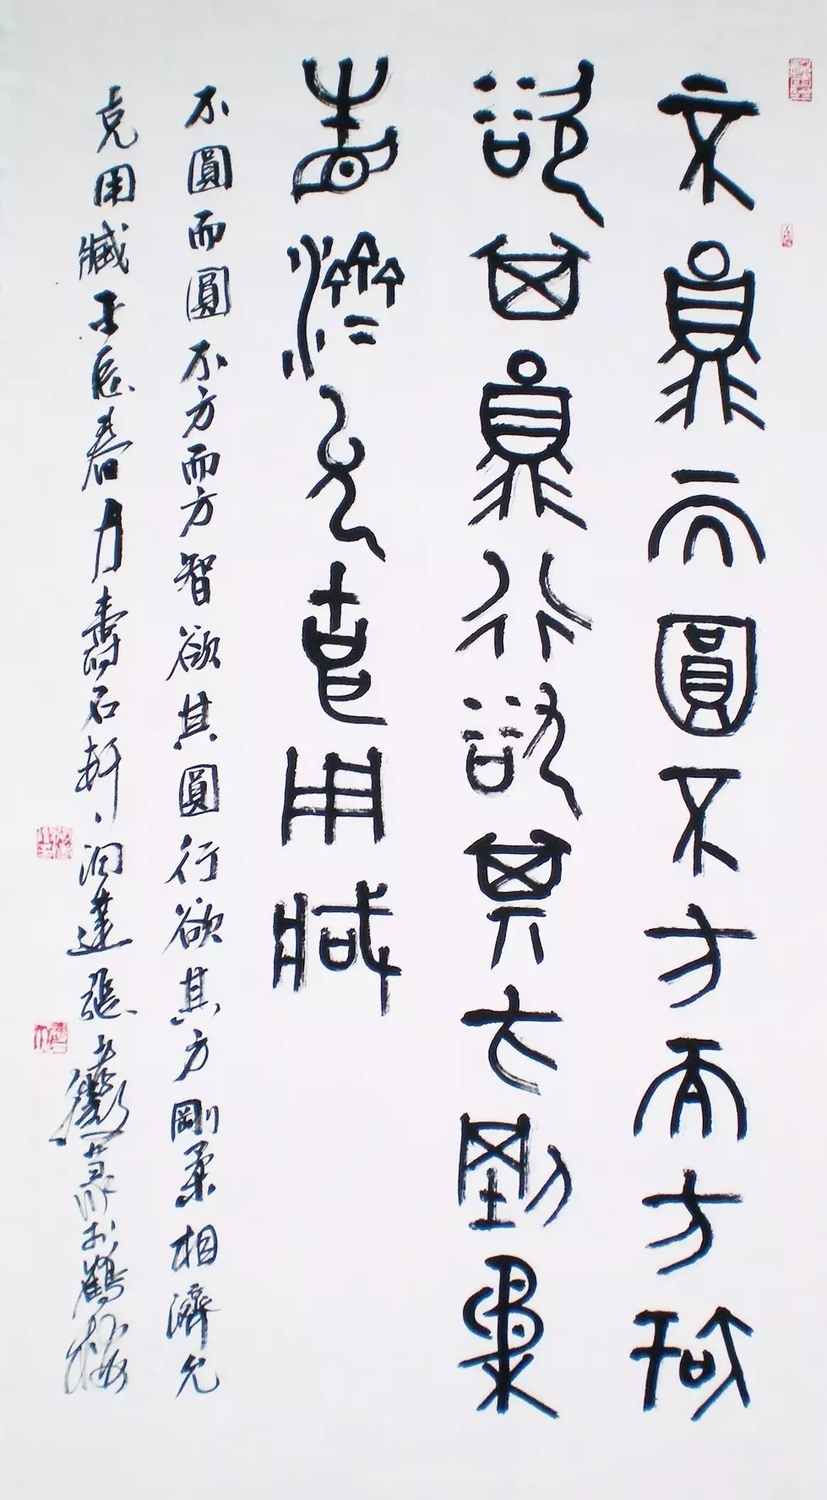 不圓而圓不方而方智
欲其圓行欲其方剛柔
相濟允克用臧
不圓而圓不方而方智欲其圓行欲其方剛柔相濟允
克用臧壬辰春月壽石軒潤蓮張篆於鶴